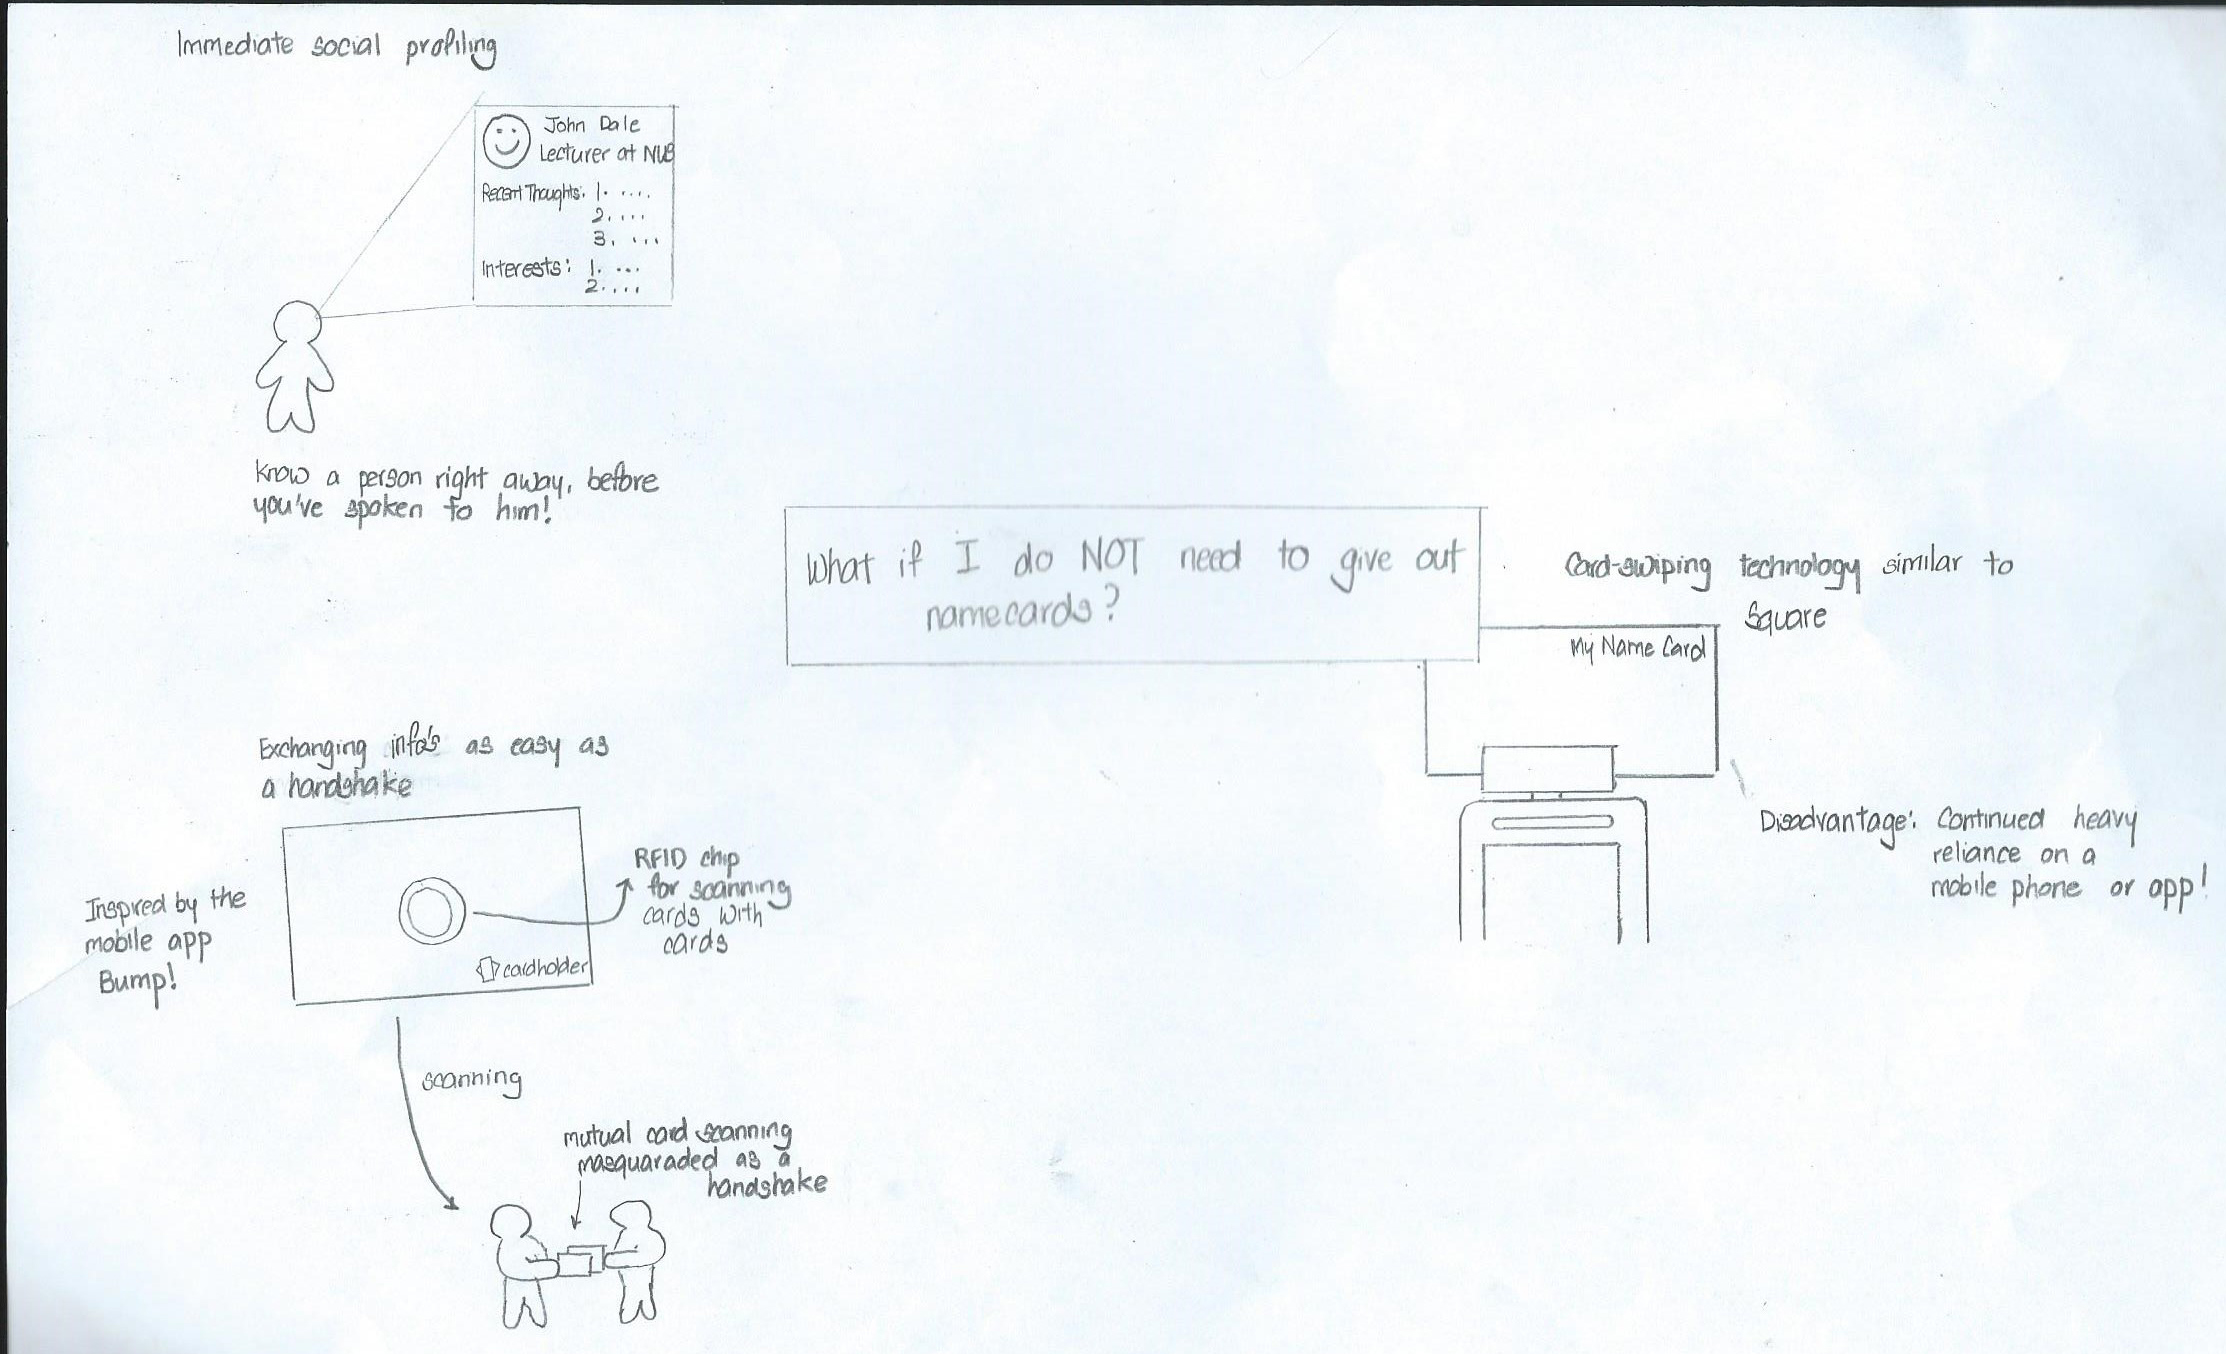 Immediate social profiling
John Dale
Lecturer at NUS
Recent Thoughts: 1. ....
2. ....
3. ...
Interests: 1. ...
2. ....
Know a person right away, before
you've spoken to him!
What if I do NOT need to give out
namecards?
Card-swiping technology similar to
Square
My Name Card
Disadvantage: Continued heavy
reliance on a
mobile phone or app!
Exchanging info's as easy as
a handshake
Inspired by the
mobile app
Bump!
RFID chip
for scanning
cards with
cards
cardholder
scanning
mutual card scanning
masquaraded as a
handshake